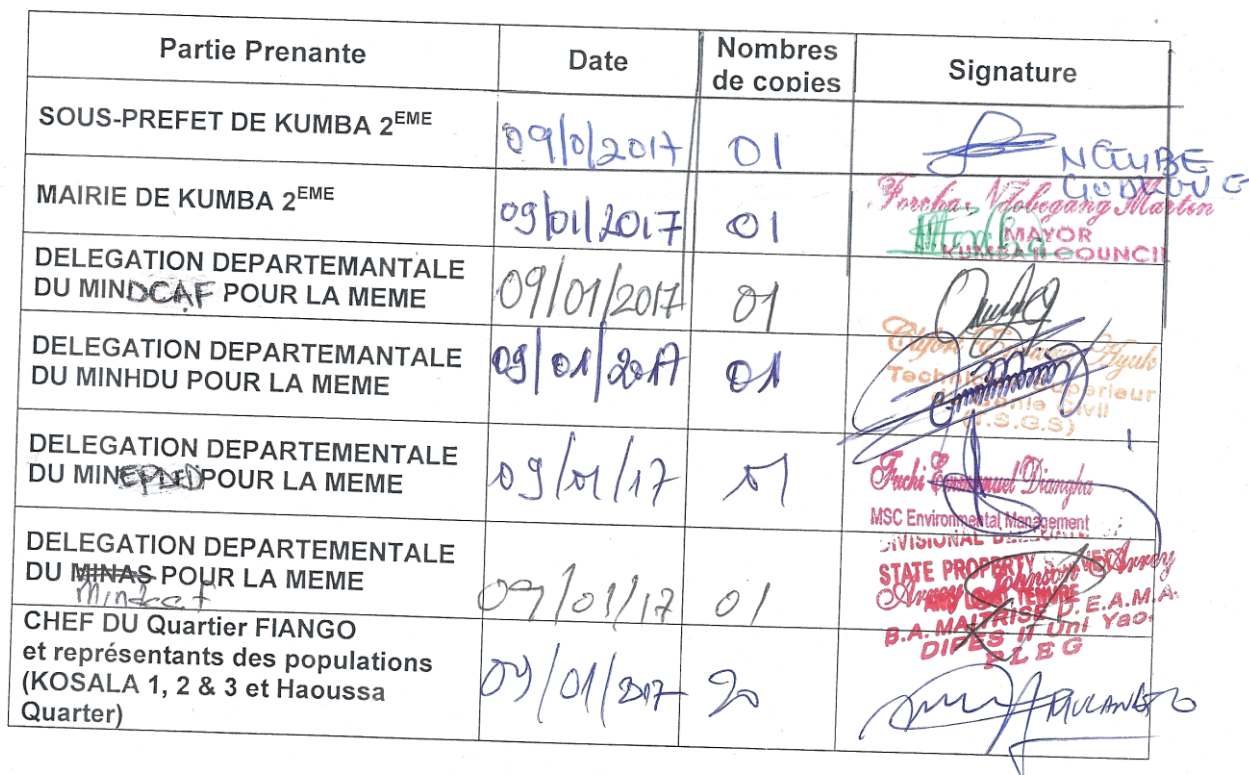 Partie Prenante Date Nombres de copies Signature
SOUS-PREFET DE KUMBA 2EME 09/0/2017 01
NGUBE
MAIRIE DE KUMBA 2EME 09/01/2017 01
Forcha Martin
MAYOR
KUMBA II COUNCIL
DELEGATION DEPARTEMANTALE
DU MINDCAF POUR LA MEME 09/01/2017 01
DELEGATION DEPARTEMANTALE
DU MINHDU POUR LA MEME 09/01/2017 01
Ayuk
Technicien Superieur
Genie Civil
(T.S.G.S)
DELEGATION DEPARTEMENTALE
DU MINEPDED POUR LA MEME 09/01/17 01
Fuchi Emmanuel Diangha
MSC Environmental Management
DELEGATION DEPARTEMENTALE
DU MINAS POUR LA MEME 09/01/17 01
Mindcaf
DIVISIONAL
STATE PROPERTY
Arrey Johnson Arrey
AND TENURE
B.A. MAITRISE D.E.A.M.A.
DIPES II Uni Yao.
PLEG
CHEF DU Quartier FIANGO
et représentants des populations
(KOSALA 1, 2 & 3 et Haoussa
Quarter) 09/01/2017 20